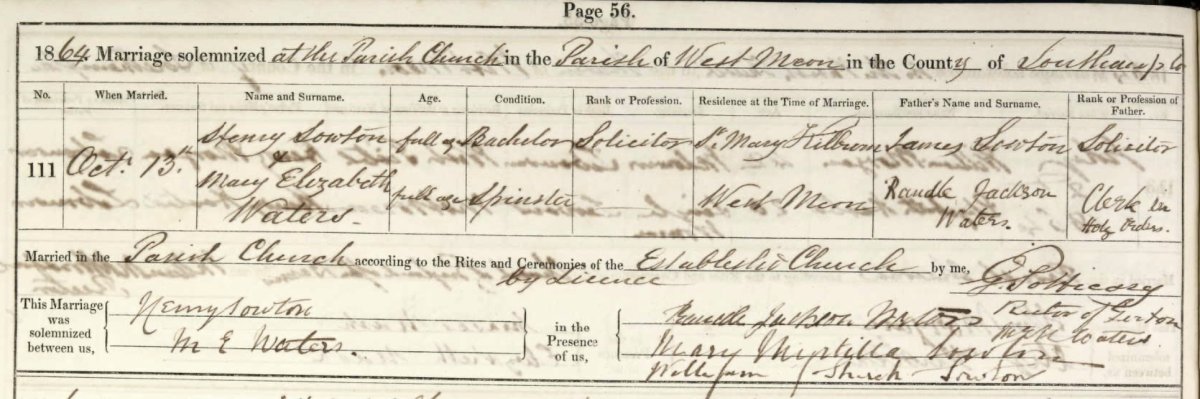 Page 56.
1864 Marriage solemnized at the Parish Church in the Parish of West Meon in the County of
No. When Married. Name and Surname. Age. Condition. Rank or Profession. Residence at the Time of Marriage. Father's Name and Surname. Rank or Profession of Father.
111 Octr. 13th Henry Sowton full age Bachelor Solicitor St. Mary Kilburn James Sowton Solicitor
&
Mary Elizabeth Waters full age Spinster West Meon Randle Jackson Waters. Clerk in Holy Orders.
Married in the Parish Church according to the Rites and Ceremonies of the Established Church by me,
by Licence
Rector of
This Marriage was solemnized between us, Henry Sowton
M E Waters.
in the Presence of us, Randle Jackson Waters
Waters.
Mary Mirtilla Sowton
William Sowton